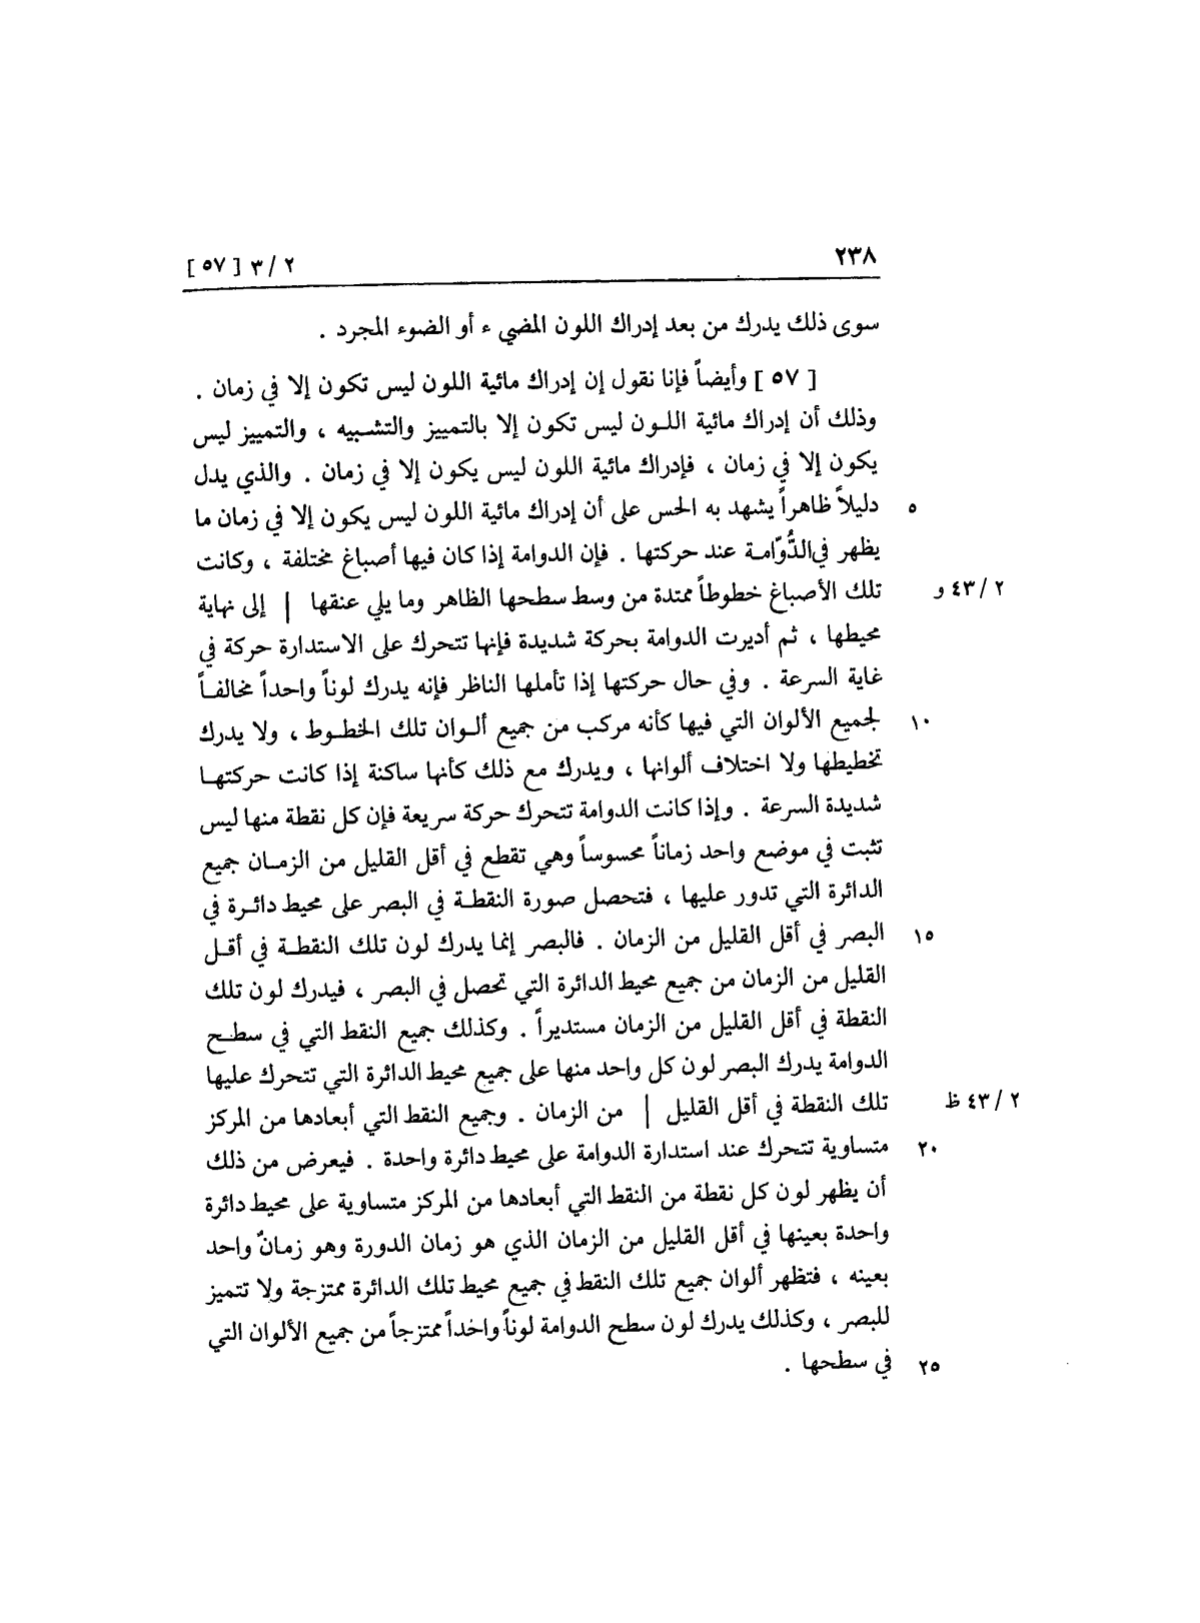 ٢٣٨
٢ / ٣ [ ٥٧ ]
سوى ذلك يدرك من بعد إدراك اللون المضيء أو الضوء المجرد .
[ ٥٧ ] وأيضاً فإنا نقول إن إدراك مائية اللون ليس تكون إلا في زمان .
وذلك أن إدراك مائية اللـون ليس تكون إلا بالتمييز والتشـبيه ، والتمييز ليس
يكون إلا في زمان ، فإدراك مائية اللون ليس يكون إلا في زمان . والذي يدل
٥ دليلاً ظاهراً يشهد به الحس على أن إدراك مائية اللون ليس يكون إلا في زمان ما
يظهر في الدُّوّامـة عند حركتها . فإن الدوامة إذا كان فيها أصباغ مختلفة ، وكانت
٢ / ٤٣ و تلك الأصباغ خطوطاً ممتدة من وسط سطحها الظاهر وما يلي عنقها | إلى نهاية
محيطها ، ثم أديرت الدوامة بحركة شديدة فإنها تتحرك على الاستدارة حركة في
غاية السرعة . وفي حال حركتها إذا تأملها الناظر فإنه يدرك لوناً واحداً مخالفـاً
١٠ لجميع الألوان التي فيها كأنه مركب من جميع ألـوان تلك الخطـوط ، ولا يدرك
تخطيطها ولا اختلاف ألوانها ، ويدرك مع ذلك كأنها ساكنة إذا كانت حركتهـا
شديدة السرعة . وإذا كانت الدوامة تتحرك حركة سريعة فإن كل نقطة منها ليس
تثبت في موضع واحد زماناً محسوساً وهي تقطع في أقل القليل من الزمـان جميع
الدائرة التي تدور عليها ، فتحصل صورة النقطـة في البصر على محيط دائـرة في
١٥ البصر في أقل القليل من الزمان . فالبصر إنما يدرك لون تلك النقطـة في أقـل
القليل من الزمان من جميع محيط الدائرة التي تحصل في البصر ، فيدرك لون تلك
النقطة في أقل القليل من الزمان مستديراً . وكذلك جميع النقط التي في سطـح
الدوامة يدرك البصر لون كل واحد منها على جميع محيط الدائرة التي تتحرك عليها
٢ / ٤٣ ظ تلك النقطة في أقل القليل | من الزمان . وجميع النقط التي أبعادها من المركز
٢٠ متساوية تتحرك عند استدارة الدوامة على محيط دائرة واحدة . فيعرض من ذلك
أن يظهر لون كل نقطة من النقط التي أبعادها من المركز متساوية على محيط دائرة
واحدة بعينها في أقل القليل من الزمان الذي هو زمان الدورة وهو زمانٌ واحد
بعينه ، فتظهر ألوان جميع تلك النقط في جميع محيط تلك الدائرة ممتزجة ولا تتميز
للبصر ، وكذلك يدرك لون سطح الدوامة لوناً واحداً ممتزجاً من جميع الألوان التي
٢٥ في سطحها .